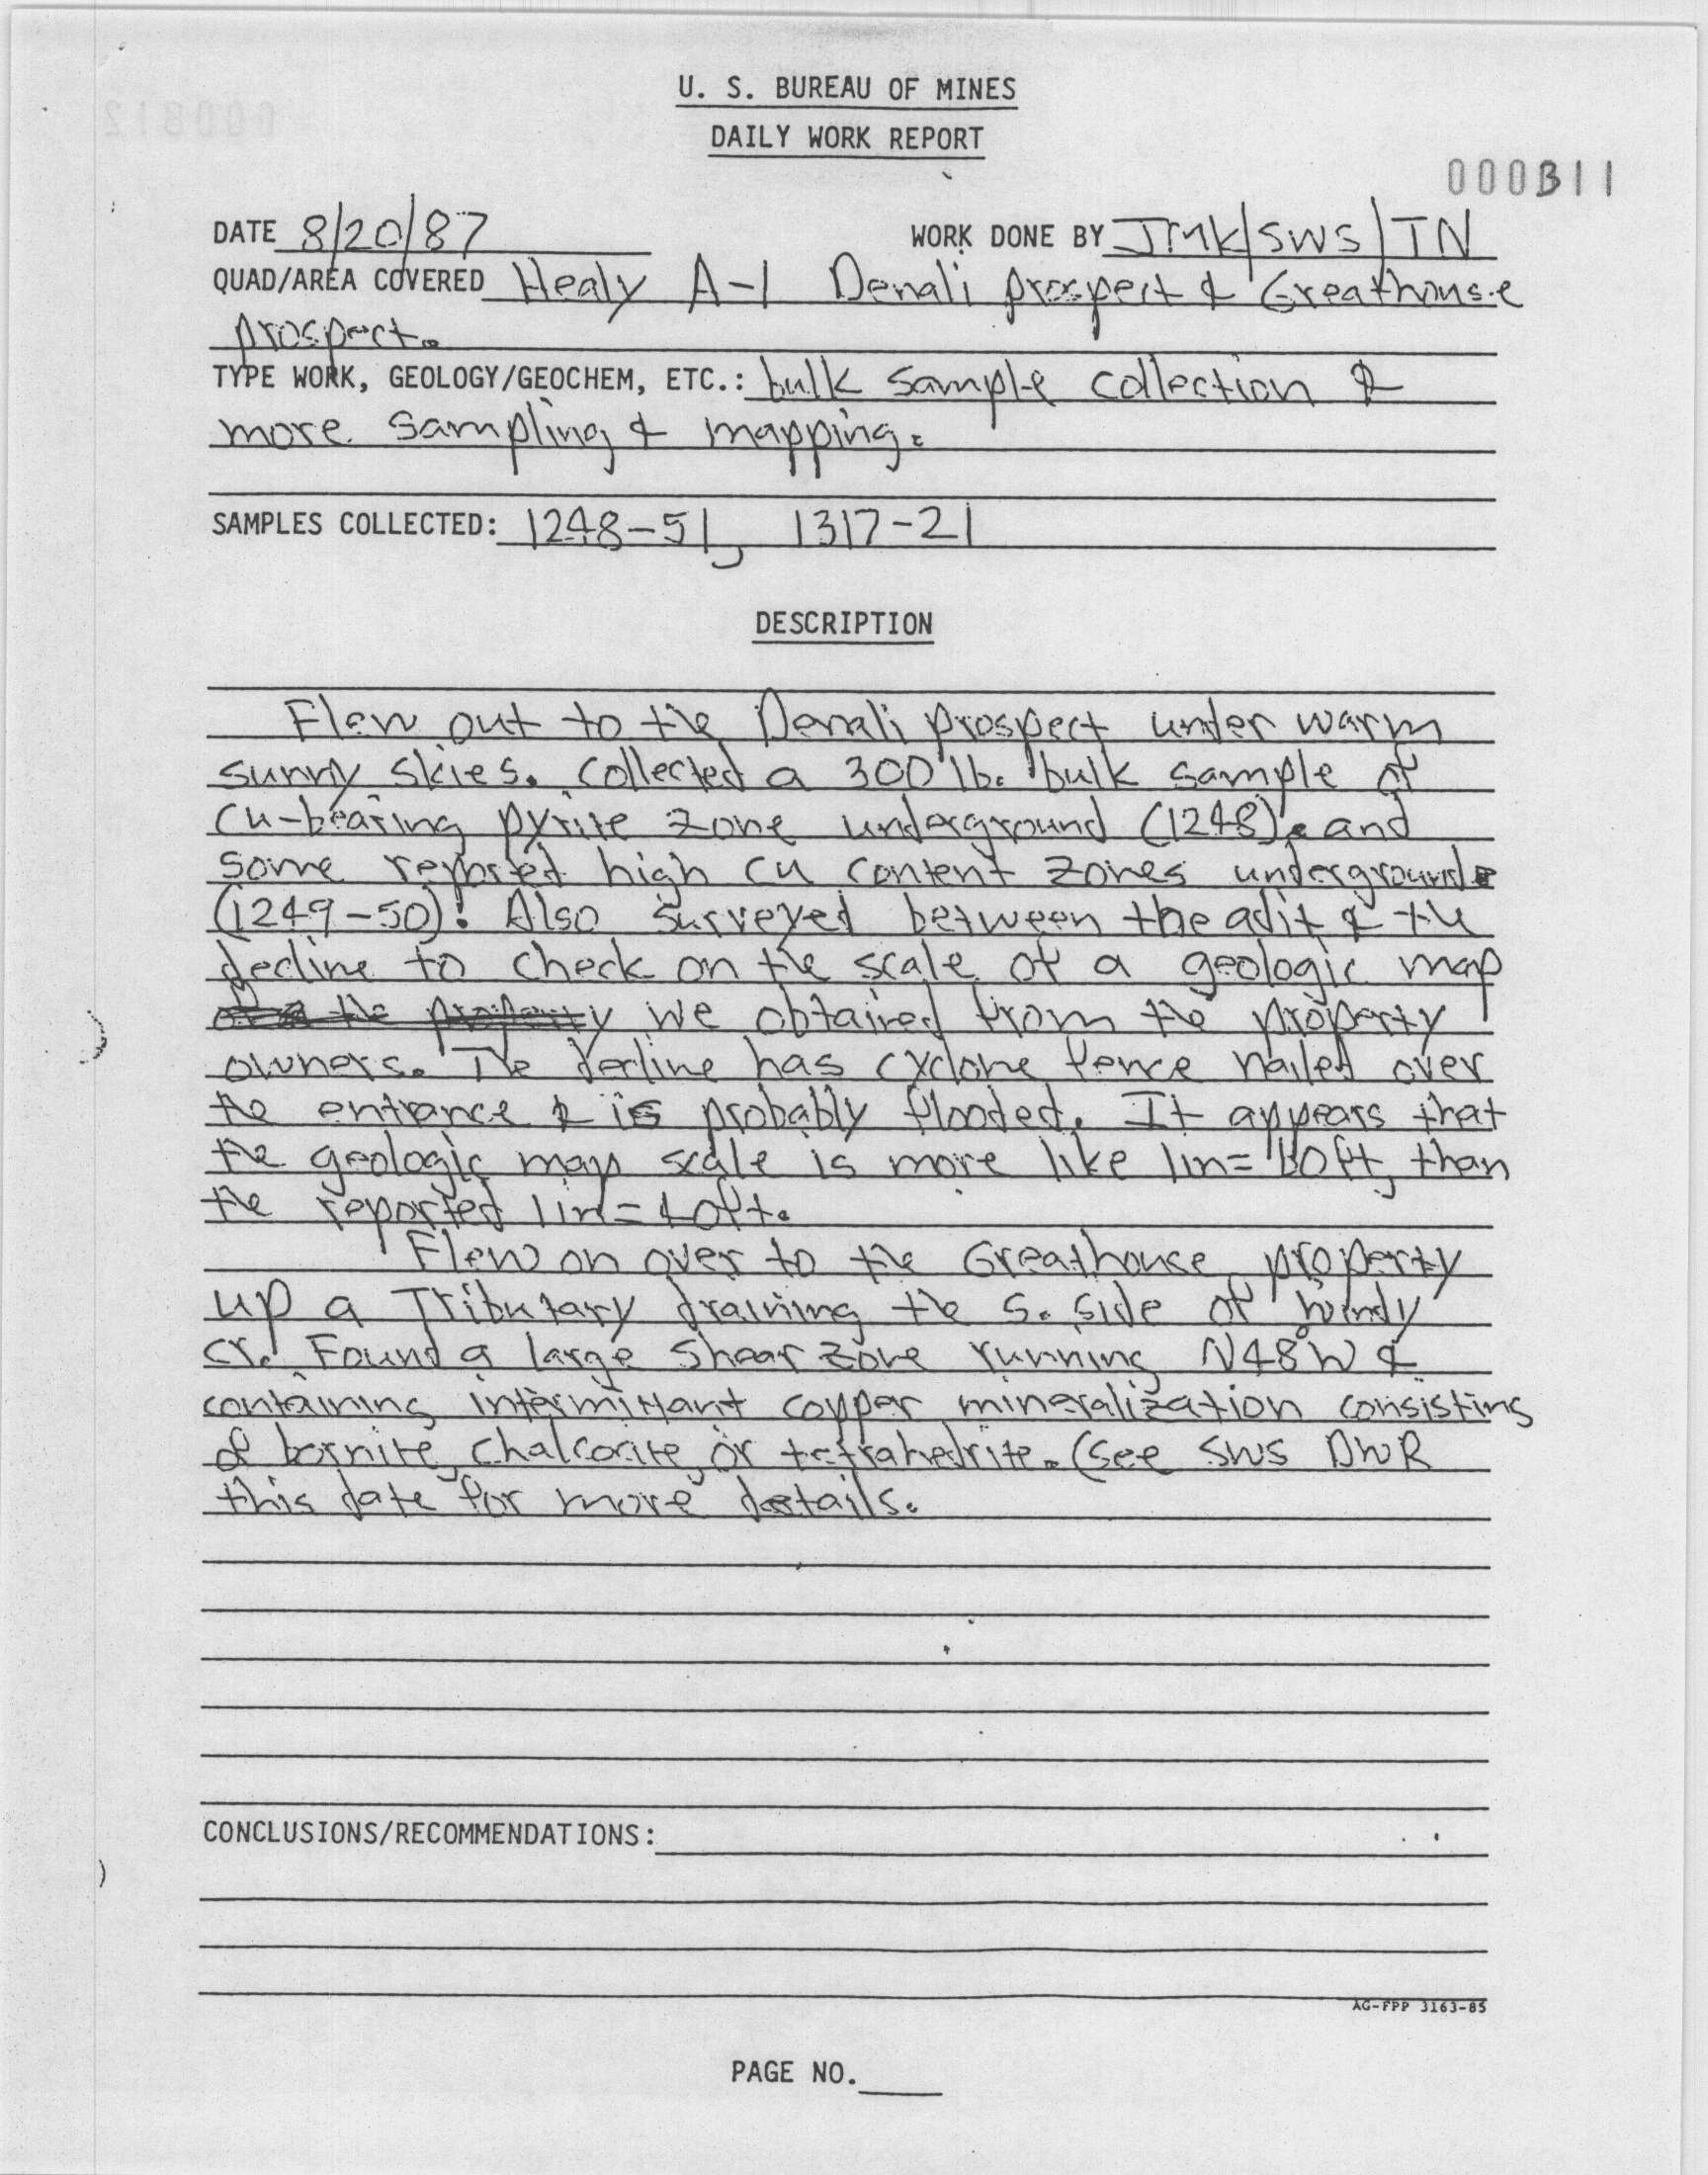 U. S. BUREAU OF MINES
DAILY WORK REPORT
000311
DATE 8/20/87 WORK DONE BY JMK/SWS/TN
QUAD/AREA COVERED Healy A-1 Denali prospect & Greathouse
prospect.
TYPE WORK, GEOLOGY/GEOCHEM, ETC.: bulk sample collection &
more sampling & mapping.
SAMPLES COLLECTED: 1248-51, 1317-21
DESCRIPTION
Flew out to the Denali prospect under warm
sunny skies. Collected a 300 lb. bulk sample of
Cu-bearing pyrite zone underground (1248), and
some reported high Cu content zones underground
(1249-50). Also surveyed between the adit & the
decline to check on the scale of a geologic map
we obtained from the property
owners. The decline has cyclone fence nailed over
the entrance & is probably flooded. It appears that
the geologic map scale is more like 1in= ft, than
the reported 1in=40ft.
Flew on over to the Greathouse property
up a Tributary draining the S. side of Windy
Cr. Found a large shear zone running N48°W &
containing intermittant copper mineralization consisting
of bornite, chalcocite, or tetrahedrite. (See SWS DWR
this date for more details.
CONCLUSIONS/RECOMMENDATIONS:
AG-FPP 3163-85
PAGE NO.